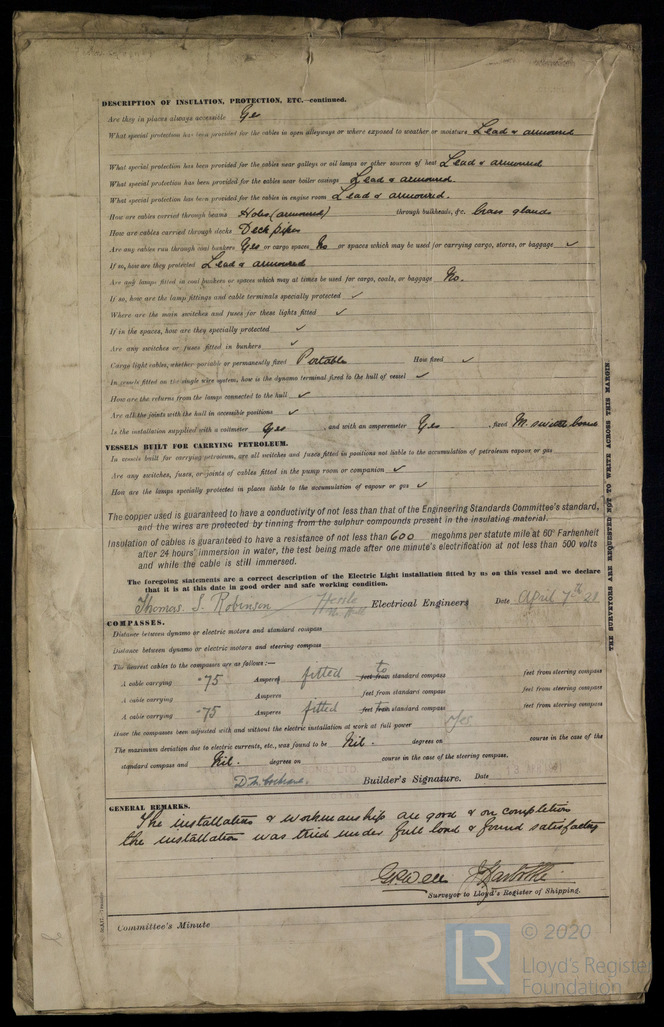 DESCRIPTION OF INSULATION, PROTECTION, ETC.—continued.
Are they in places always accessible Yes
What special protection has been provided for the cables in open alleyways or where exposed to weather or moisture Lead & armoured
What special protection has been provided for the cables near galleys or oil lamps or other sources of heat Lead & armoured
What special protection has been provided for the cables near boiler casings Lead & armoured.
What special protection has been provided for the cables in engine room Lead & armoured.
How are cables carried through beams Holes (armoured) through bulkheads, &c. brass glands
How are cables carried through decks Deck pipes
Are any cables run through coal bunkers Yes or cargo spaces No or spaces which may be used for carrying cargo, stores, or baggage ✓
If so, how are they protected Lead & armoured
Are any lamps fitted in coal bunkers or spaces which may at times be used for cargo, coals, or baggage No.
If so, how are the lamp fittings and cable terminals specially protected ✓
Where are the main switches and fuses for these lights fitted ✓
If in the spaces, how are they specially protected ✓
Are any switches or fuses fitted in bunkers ✓
Cargo light cables, whether portable or permanently fixed Portable How fixed ✓
In vessels fitted on the single wire system, how is the dynamo terminal fixed to the hull of vessel ✓
How are the returns from the lamps connected to the hull ✓
Are all the joints with the hull in accessible positions ✓
Is the installation supplied with a voltmeter Yes , and with an amperemeter Yes , fixed M. switch board
VESSELS BUILT FOR CARRYING PETROLEUM.
In vessels built for carrying petroleum, are all switches and fuses fitted in positions not liable to the accumulation of petroleum vapour or gas
Are any switches, fuses, or joints of cables fitted in the pump room or companion ✓
How are the lamps specially protected in places liable to the accumulation of vapour or gas ✓
The copper used is guaranteed to have a conductivity of not less than that of the Engineering Standards Committee's standard,
and the wires are protected by tinning from the sulphur compounds present in the insulating material.
Insulation of cables is guaranteed to have a resistance of not less than 600 megohms per statute mile at 60° Farhenheit
after 24 hours' immersion in water, the test being made after one minute's electrification at not less than 500 volts
and while the cable is still immersed.
The foregoing statements are a correct description of the Electric Light installation fitted by us on this vessel and we declare
that it is at this date in good order and safe working condition.
Thomas S. Robinson Electrical Engineers Date April 7th 21
COMPASSES.
Distance between dynamo or electric motors and standard compass
Distance between dynamo or electric motors and steering compass
The nearest cables to the compasses are as follows:—
A cable carrying .75 Amperes fitted to feet from standard compass feet from steering compass
A cable carrying Amperes feet from standard compass feet from steering compass
A cable carrying .75 Amperes fitted to feet from standard compass feet from steering compass
Have the compasses been adjusted with and without the electric installation at work at full power Yes
The maximum deviation due to electric currents, etc., was found to be Nil. degrees on course in the case of the
standard compass and Nil. degrees on course in the case of the steering compass.
Builder's Signature. Date
GENERAL REMARKS.
The installation & workmanship are good & on completion
the installation was tried under full load & found satisfactory
Surveyor to Lloyd's Register of Shipping.
Committee's Minute
THE SURVEYORS ARE REQUESTED NOT TO WRITE ACROSS THIS MARGIN.
LR
© 2020
Lloyd's Register
Foundation